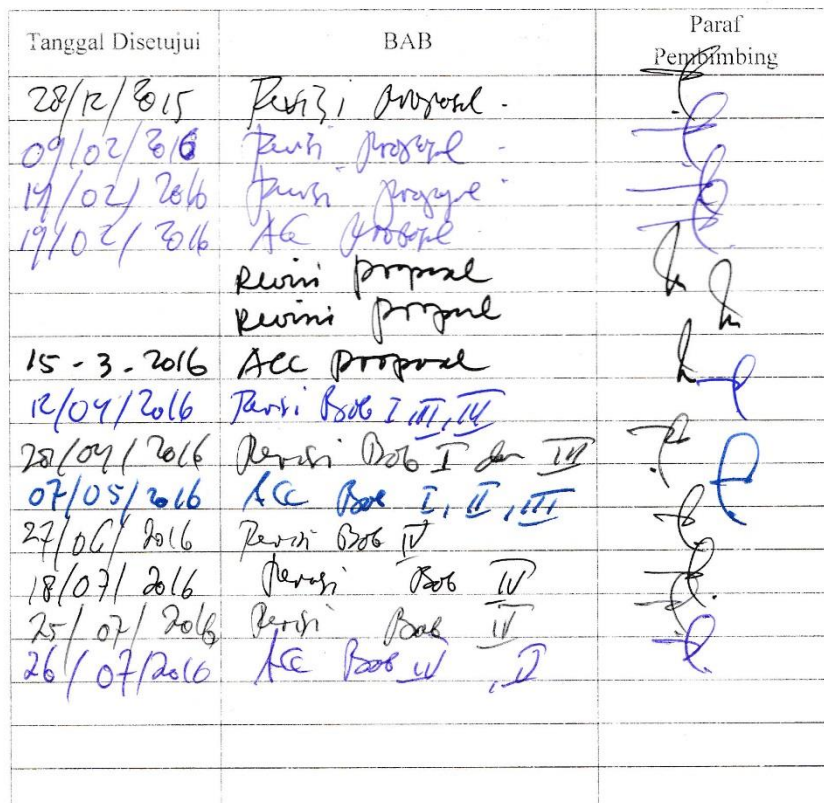 Tanggal Disetujui BAB Paraf Pembimbing
28/12/2015 Revisi proposal.
09/02/2016 Revisi proposal -
17/02/2016 Revisi proposal -
19/02/2016 ACC proposal
Revisi proposal
Revisi proposal
15-3-2016 ACC proposal
12/04/2016 Revisi Bab I, III, IV
28/04/2016 Revisi Bab I dan III
07/05/2016 ACC Bab I, II, III
27/06/2016 Revisi Bab IV
18/07/2016 Revisi Bab IV
25/07/2016 Revisi Bab IV
26/07/2016 ACC Bab IV, V